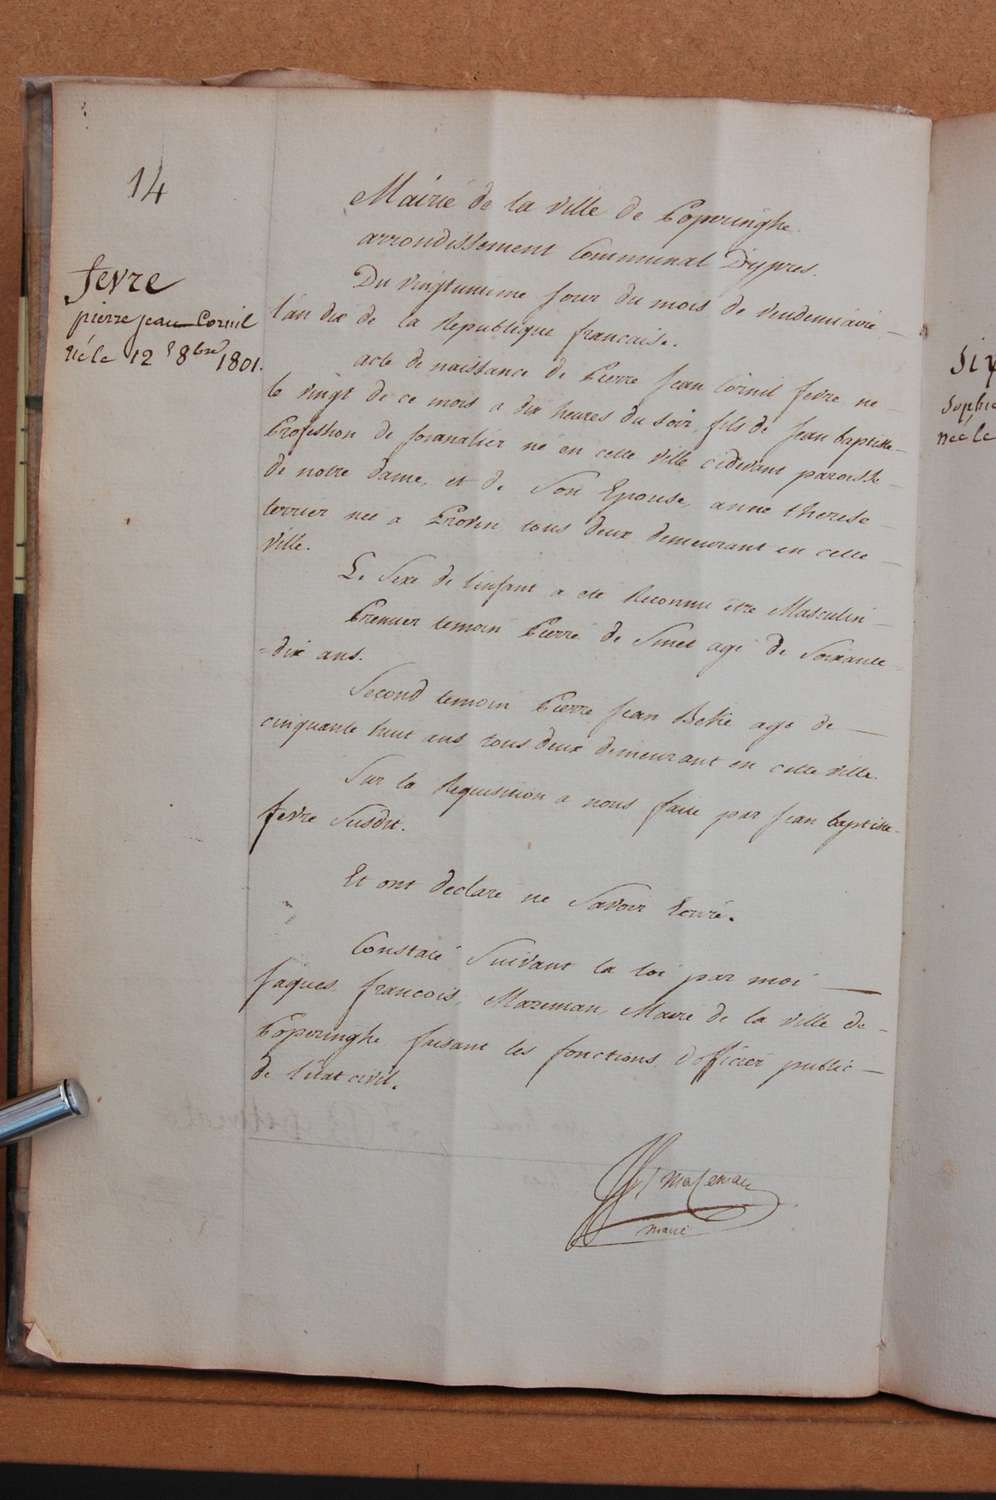 14
fevre
pierre jean Cornil
né le 12 8bre 1801.
Mairie de la ville de Poperinghe
arrondissement Communal D'ypres.
Du vingtunime jour du mois de vendemiaire
l'an dix de la Republique francaise.
acte de naissance de Pierre Jean Cornil fevre ne
le vingt de ce mois a dix heures du soir, fils de Jean baptiste
Profession de journalier né en cette ville cidevant paroisse
de notre dame, et de Son Epouse, anne therese
terrier neé a Proven tous deux demeurant en cette
ville.
Le Sexe de l'enfant a eté Reconnu être Masculin
Premier temoin Pierre de Smet agé de Soixante
dix ans.
Second temoin Pierre Jean Bekie agé de
cinquante huit ans, tous deux demeurant en cette ville.
Sur la Requisition a nous faite par Jean baptiste
fevre Susdit.
Et ont declare ne Savoir Ecrire.
Constaté Suivant la loi par moi
Jaques francois Mazeman, Maire de la ville de
Poperinghe faisant les fonctions d'officier public
de l'etat civil.
Mazeman
maire
Six
Sophie
neé le